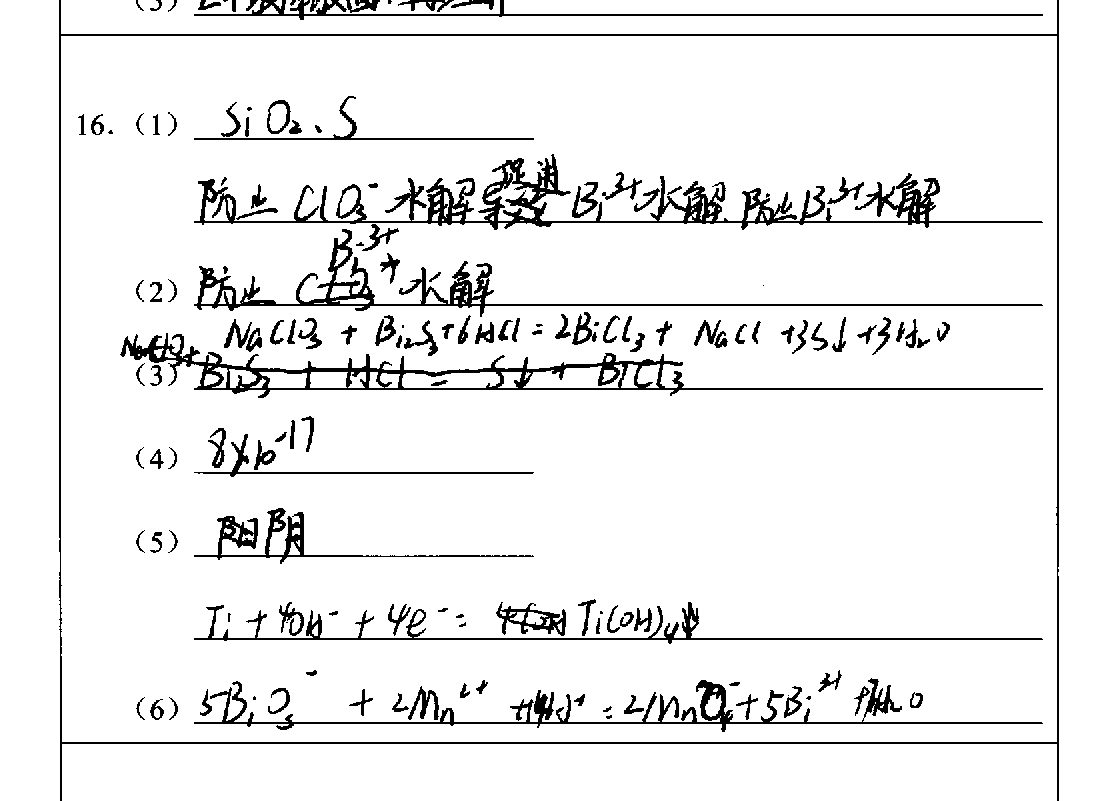 16.（1） SiO₂、S
防止ClO₃⁻水解促进Bi³⁺水解.防止Bi³⁺水解
（2）防止Bi³⁺水解
NaClO₃ + Bi₂S₃+6HCl=2BiCl₃+ NaCl +3S↓+3H₂O
（3）Bi₂S₃ + HCl = S↓ + BiCl₃
（4） 8×10⁻¹⁷
（5） 阳阴
Ti + 4OH⁻ + 4e⁻ = Ti(OH)₄↓
（6） 5BiO₃⁻ + 2Mn²⁺ +14H⁺ = 2MnO₄⁻+5Bi³⁺ +7H₂O